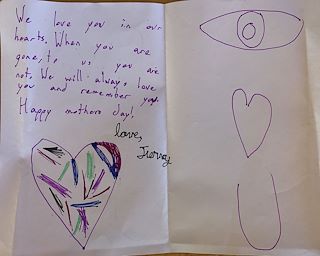 We love you in our
hearts. When you are
gone, to us you are
not. We will always love
you and remember you.
Happy mothers day!
love,